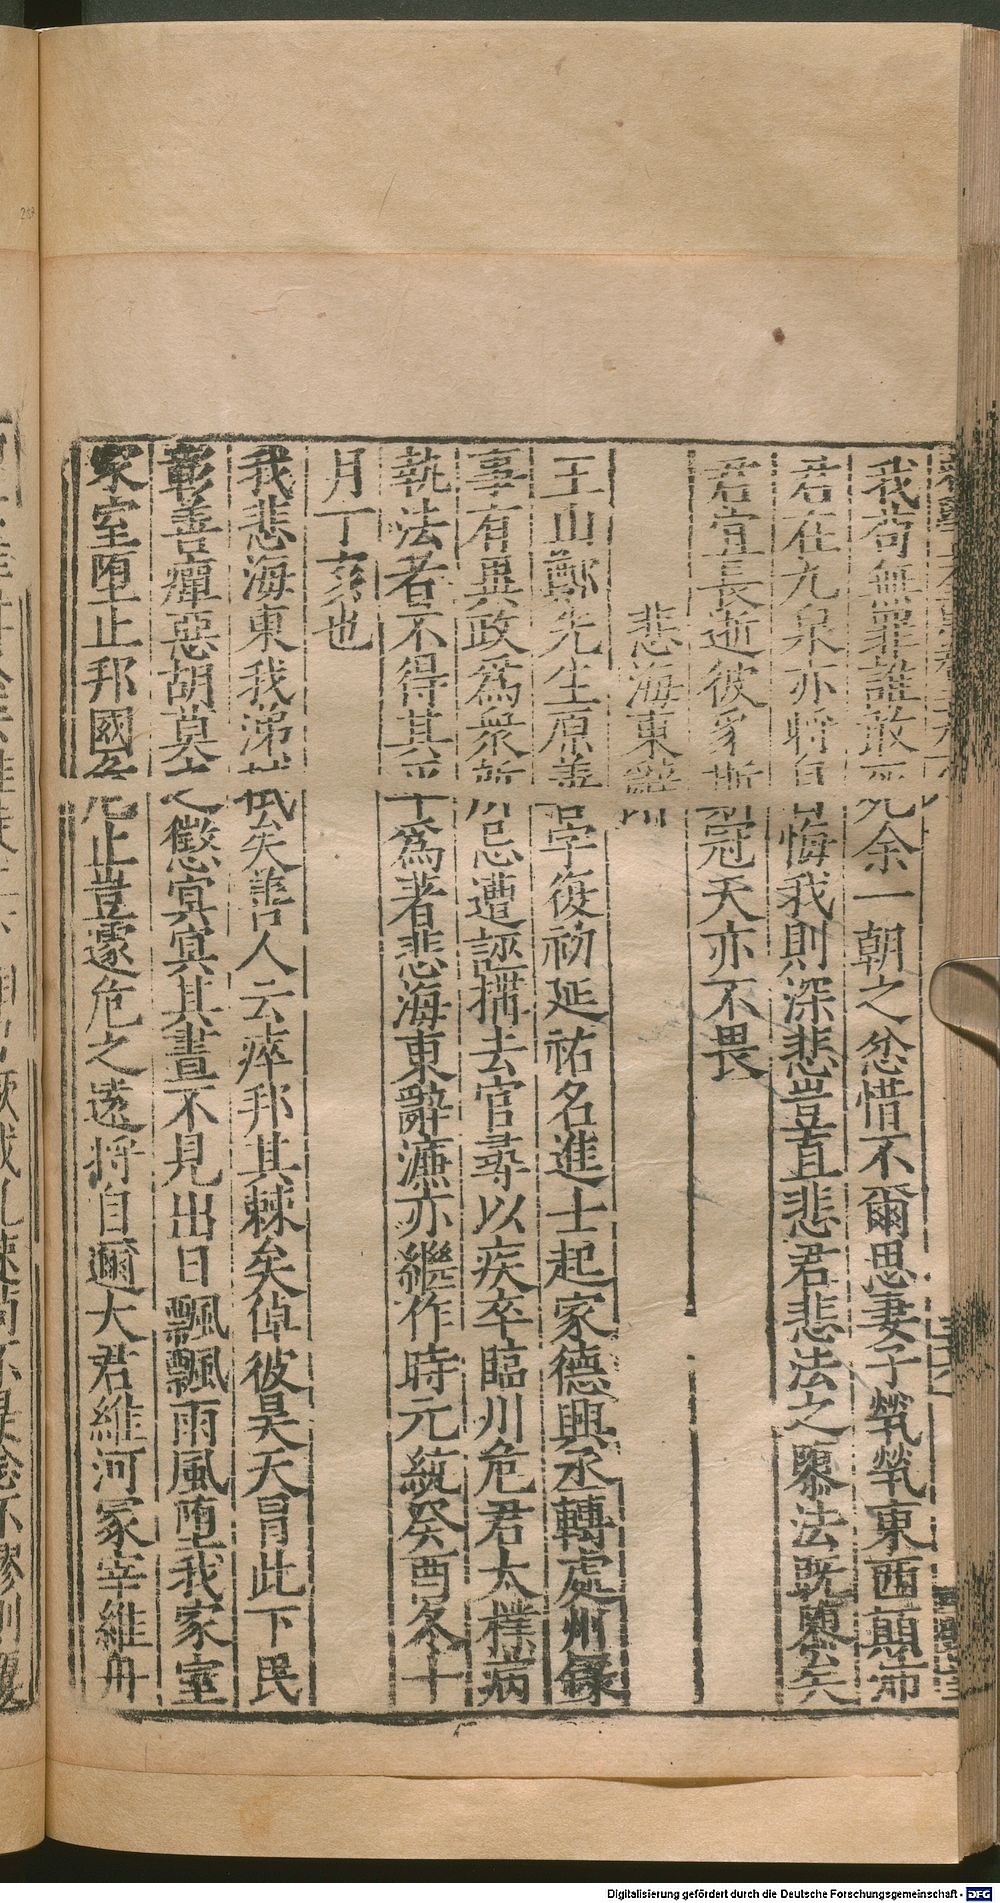 我苟無罪誰敢死余一朝之忿惜不爾思妻子煢煢東西顛沛
君在九泉亦將自悔我則深悲豈直悲君悲法之隳法既隳矣
君宜長逝彼豸斯冠天亦不畏
悲海東辭
王山鄭先生原善字復初延祐名進士起家德興丞轉處州錄
事有異政爲衆所忌遭誣搆去官尋以疾卒臨川危君太樸病
執法者不得其平爲著悲海東辭濂亦繼作時元統癸酉冬十
月丁亥也
我悲海東我涕抆矣善人云瘁邦其棘矣倬彼昊天胃此下民
彰善癉惡胡莫之懲冥冥其晝不見出日飄飄雨風墮我家室
家室墮止邦國危止豈遽危之遠將自邇大君維河冢宰維舟
Digitalisierung gefördert durch die Deutsche Forschungsgemeinschaft - DFG